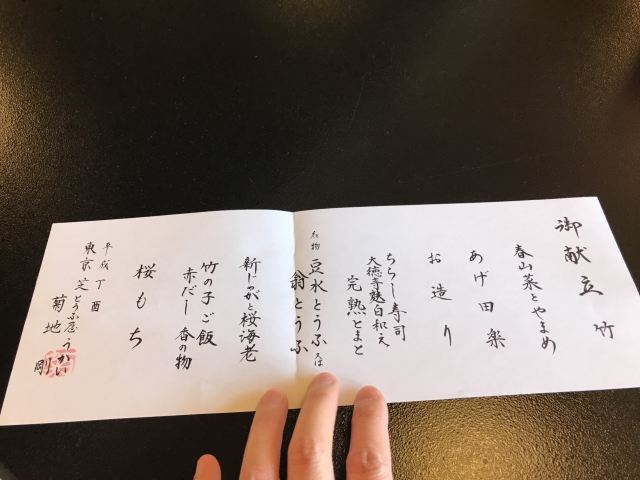 御献立 竹
春山菜とやまめ
あげ田楽
お造り
ちらし寿司
大徳寺麩白和え
完熟とまと
名物 豆水とうふ
翁とうふ
新じゃがと桜海老
竹の子ご飯
赤だし 香の物
桜もち
平成丁酉
東京芝とうふ屋うかい
菊地 剛